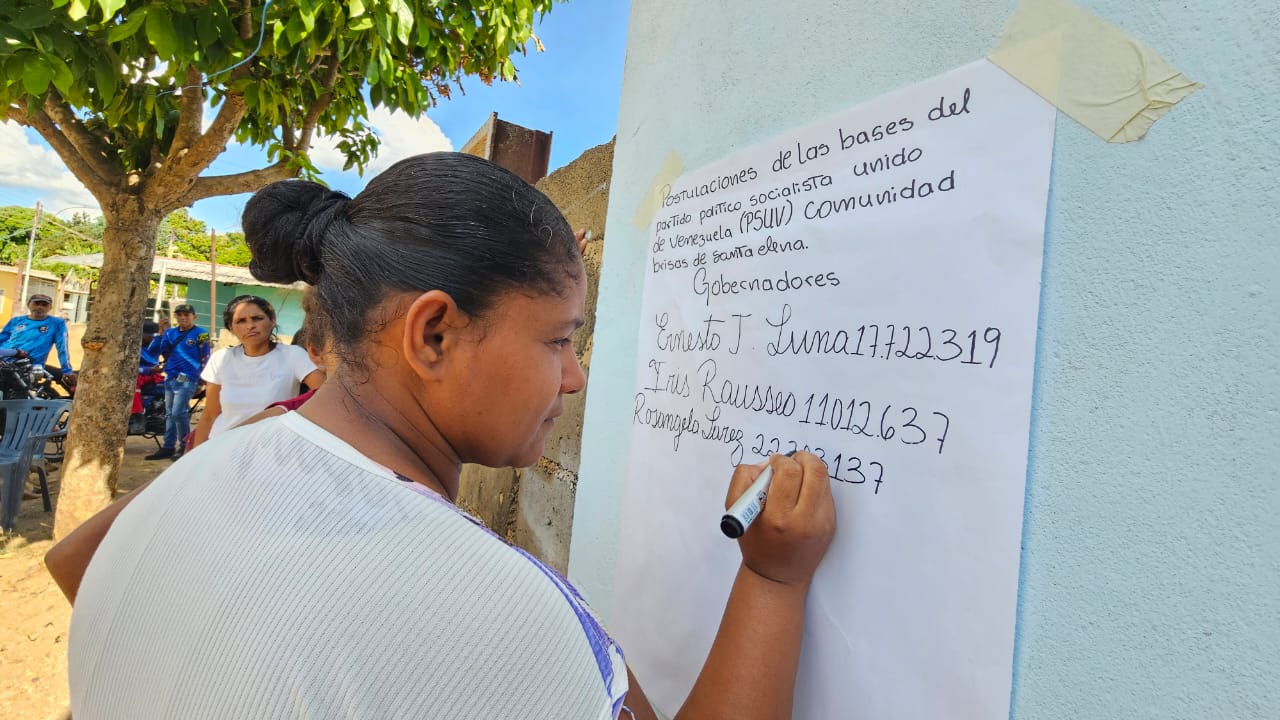 Postulaciones de las bases del
partido político socialista unido
de Venezuela (PSUV) comunidad
brisas de santa elena.
Gobernadores
Ernesto J. Luna 17.722.319
Iris Rausseo 11012.637
Rosangela Larez